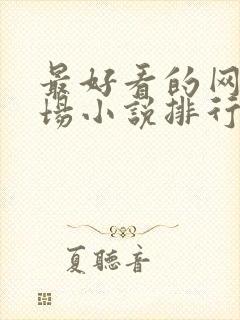 最好看的网
场小说排行
夏聽音